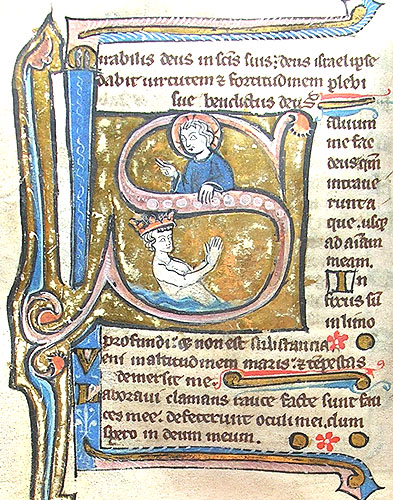 irabilis deus in scis suis: deus israel ipse
dabit uirtutem & fortitudinem plebi
sue benedictus deus
S
aluum
me fac
deus qm
intraue
runt a
que usq;
ad aiam
meam.
In
fixus sū
in limo
profundi: & non est substantia
Veni in altitudinem maris: & tempestas
demersit me
Laboraui clamans rauce facte sunt fau
ces mee: defecerunt oculi mei, dum
spero in deum meum.